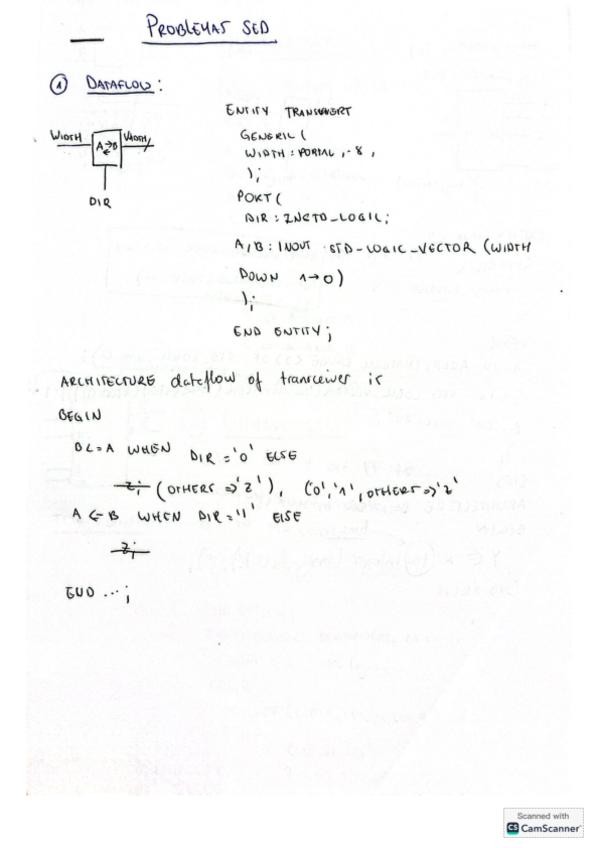 PROBLEMAS SED
① DATAFLOW:
WIDTH
A B
WIDTH
DIR
ENTITY
GENERIC (
WIDTH : , -8 ,
);
PORT (
DIR : _LOGIC;
A/B : INOUT STD_LOGIC_VECTOR (WIDTH
DOWN 1→0)
);
END ENTITY;
ARCHITECTURE dataflow of tranceiver is
BEGIN
B<=A WHEN DIR='0' ELSE
Z; (OTHERS =>'Z'), ('0','1', OTHERS=>'Z'
A <= B WHEN DIR='1' ELSE
Z;
END ...;
Scanned with
CS CamScanner